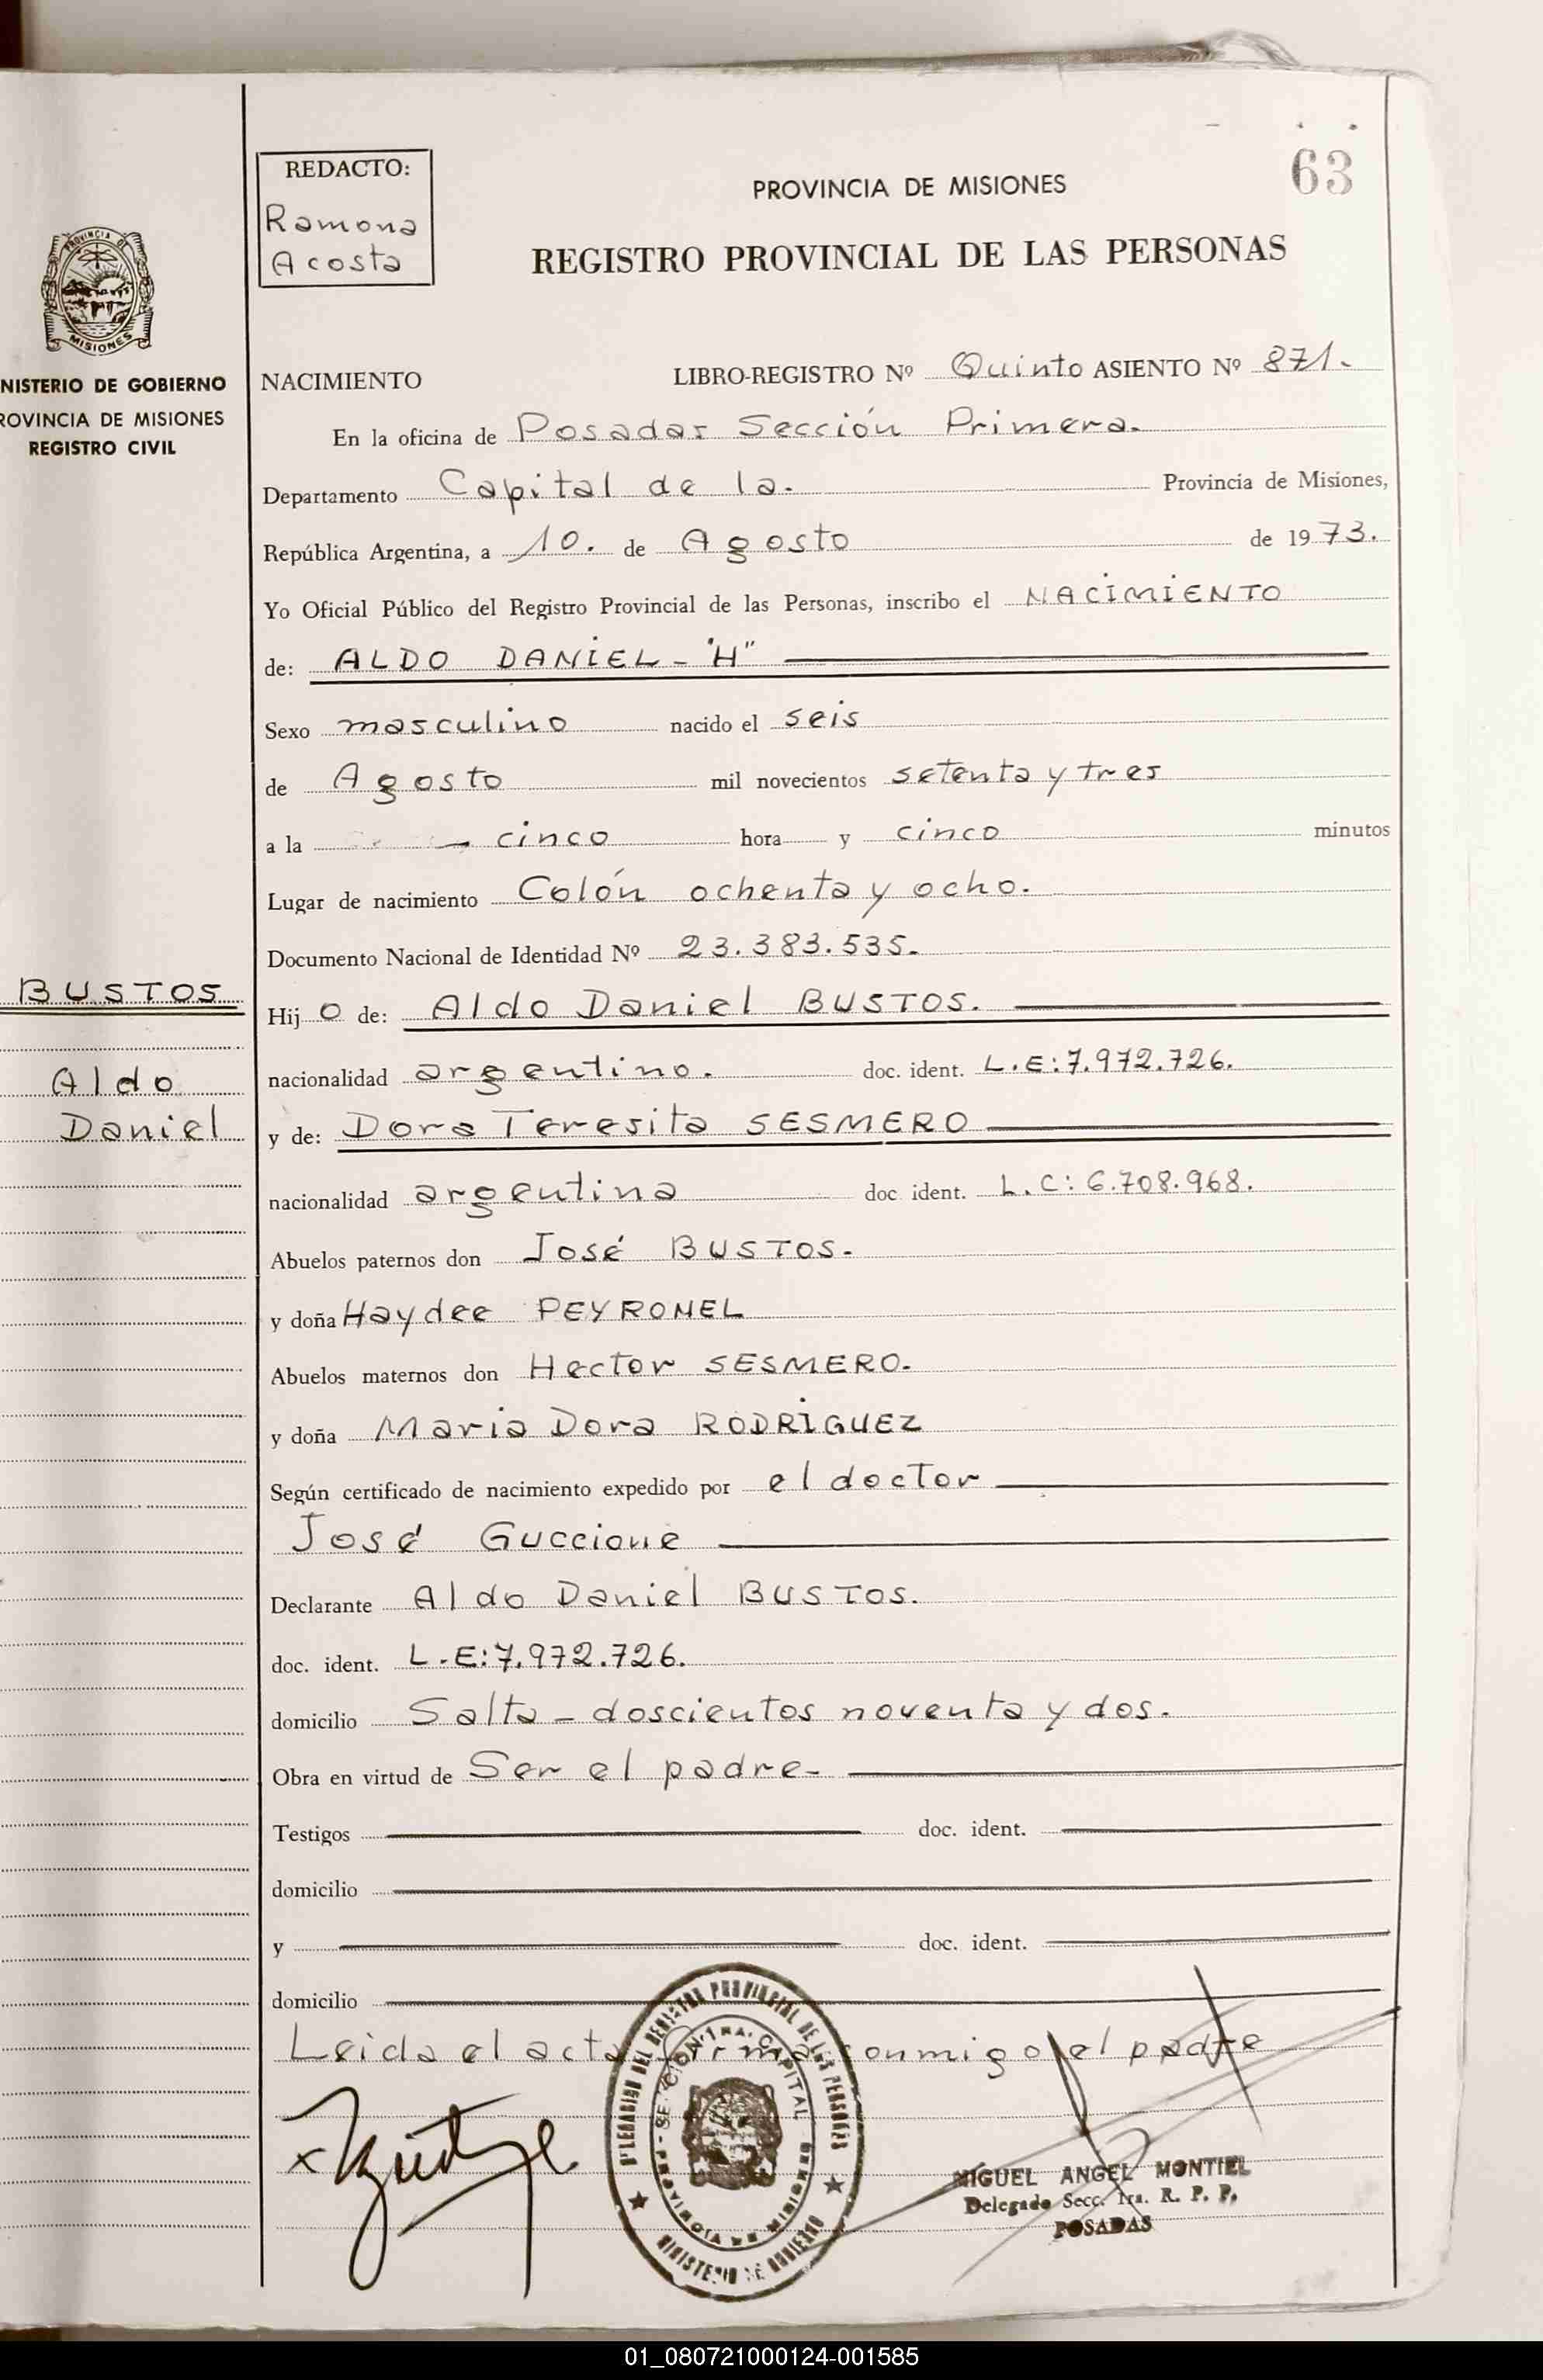 REDACTO:
Ramona
Acosta
63
PROVINCIA DE MISIONES
REGISTRO PROVINCIAL DE LAS PERSONAS
PROVINCIA DE
MISIONES
NISTERIO DE GOBIERNO
ROVINCIA DE MISIONES
REGISTRO CIVIL
NACIMIENTO LIBRO-REGISTRO Nº Quinto ASIENTO Nº 871.
En la oficina de Posadas Sección Primera.
Departamento Capital de la. Provincia de Misiones,
República Argentina, a 10. de Agosto de 1973.
Yo Oficial Público del Registro Provincial de las Personas, inscribo el NACIMIENTO
de: ALDO DANIEL - "H"
Sexo masculino nacido el seis
de Agosto mil novecientos setenta y tres
a la cinco hora y cinco minutos
Lugar de nacimiento Colón ochenta y ocho.
Documento Nacional de Identidad Nº 23.383.535.
BUSTOS
Aldo
Daniel
Hijo de: Aldo Daniel BUSTOS.
nacionalidad argentino. doc. ident. L.E:7.972.726.
y de: Dora Teresita SESMERO
nacionalidad argentina doc ident. L.C: 6.708.968.
Abuelos paternos don José BUSTOS.
y doña Haydee PEYRONEL
Abuelos maternos don Hector SESMERO.
y doña Maria Dora RODRIGUEZ
Según certificado de nacimiento expedido por el doctor
José Guccione
Declarante Aldo Daniel BUSTOS.
doc. ident. L.E:7.972.726.
domicilio Salta - doscientos noventa y dos.
Obra en virtud de Ser el padre-
Testigos doc. ident.
domicilio
y doc. ident.
domicilio
Leida el acta firma conmigo el padre
DELEGACION DEL REGISTRO PROVINCIAL DE LAS PERSONAS
SECCION 1RA. CAPITAL
PROVINCIA DE MISIONES
MINISTERIO DE GOBIERNO
MIGUEL ANGEL MONTIEL
Delegado Secc. 1ra. R. P. P.
POSADAS
01_080721000124-001585